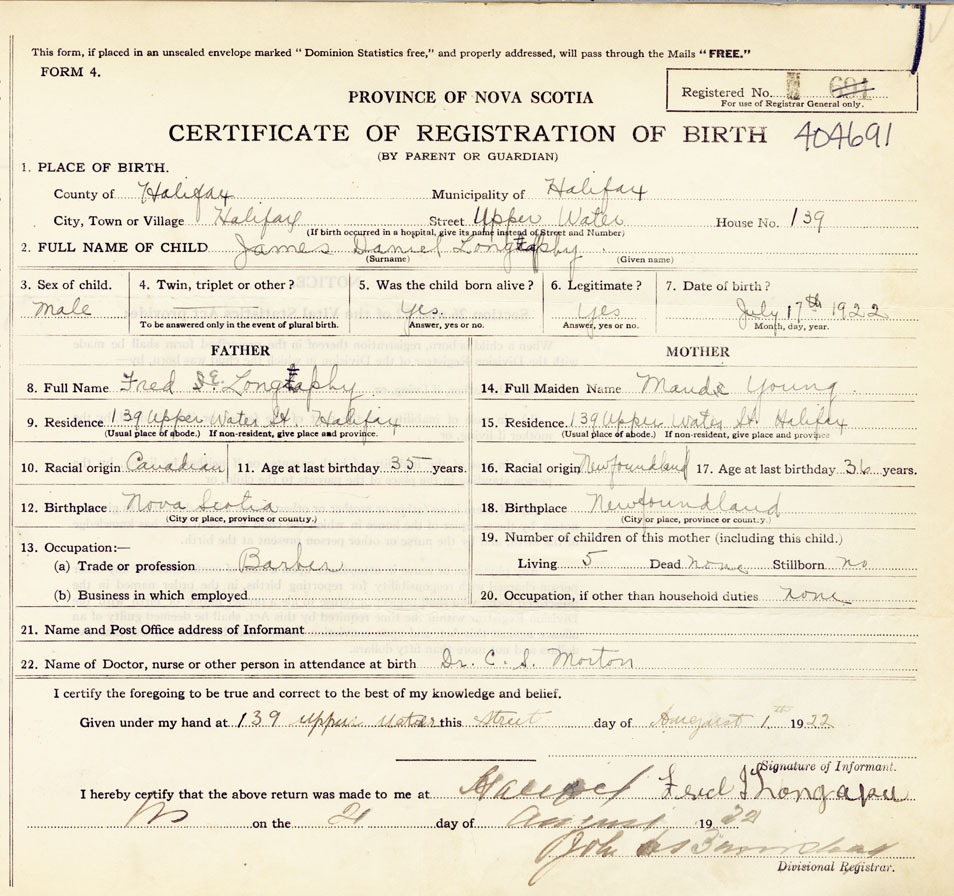 This form, if placed in an unsealed envelope marked “ Dominion Statistics free,” and properly addressed, will pass through the Mails “FREE.”
FORM 4.
Registered No. 691
For use of Registrar General only.
PROVINCE OF NOVA SCOTIA
CERTIFICATE OF REGISTRATION OF BIRTH 404691
(BY PARENT OR GUARDIAN)
1. PLACE OF BIRTH.
County of Halifax Municipality of Halifax
City, Town or Village Halifax Street Upper Water House No. 139
(If birth occurred in a hospital, give its name instead of Street and Number)
2. FULL NAME OF CHILD James Daniel Longtaphy
(Surname) (Given name)
3. Sex of child. 4. Twin, triplet or other? 5. Was the child born alive? 6. Legitimate? 7. Date of birth?
Male Yes. Yes July 17th 1922
To be answered only in the event of plural birth. Answer, yes or no. Answer, yes or no. Month, day, year.
FATHER MOTHER
8. Full Name Fred Longtaphy 14. Full Maiden Name Maude Young
9. Residence 139 Upper Water St. Halifax 15. Residence 139 Upper Water St. Halifax
(Usual place of abode.) If non-resident, give place and province. (Usual place of abode.) If non-resident, give place and province
10. Racial origin Canadian 11. Age at last birthday 35 years. 16. Racial origin Newfoundland 17. Age at last birthday 36 years.
12. Birthplace Nova Scotia 18. Birthplace Newfoundland
(City or place, province or country.) (City or place, province or country.)
13. Occupation:— 19. Number of children of this mother (including this child.)
(a) Trade or profession Barber Living 5 Dead none Stillborn no
(b) Business in which employed 20. Occupation, if other than household duties none
21. Name and Post Office address of Informant
22. Name of Doctor, nurse or other person in attendance at birth Dr. C. S. Morton
I certify the foregoing to be true and correct to the best of my knowledge and belief.
Given under my hand at 139 Upper Water this Street day of August 1th 1922
Signature of Informant.
I hereby certify that the above return was made to me at Fred Longapu
on the 21 day of August 1922
John
Divisional Registrar.